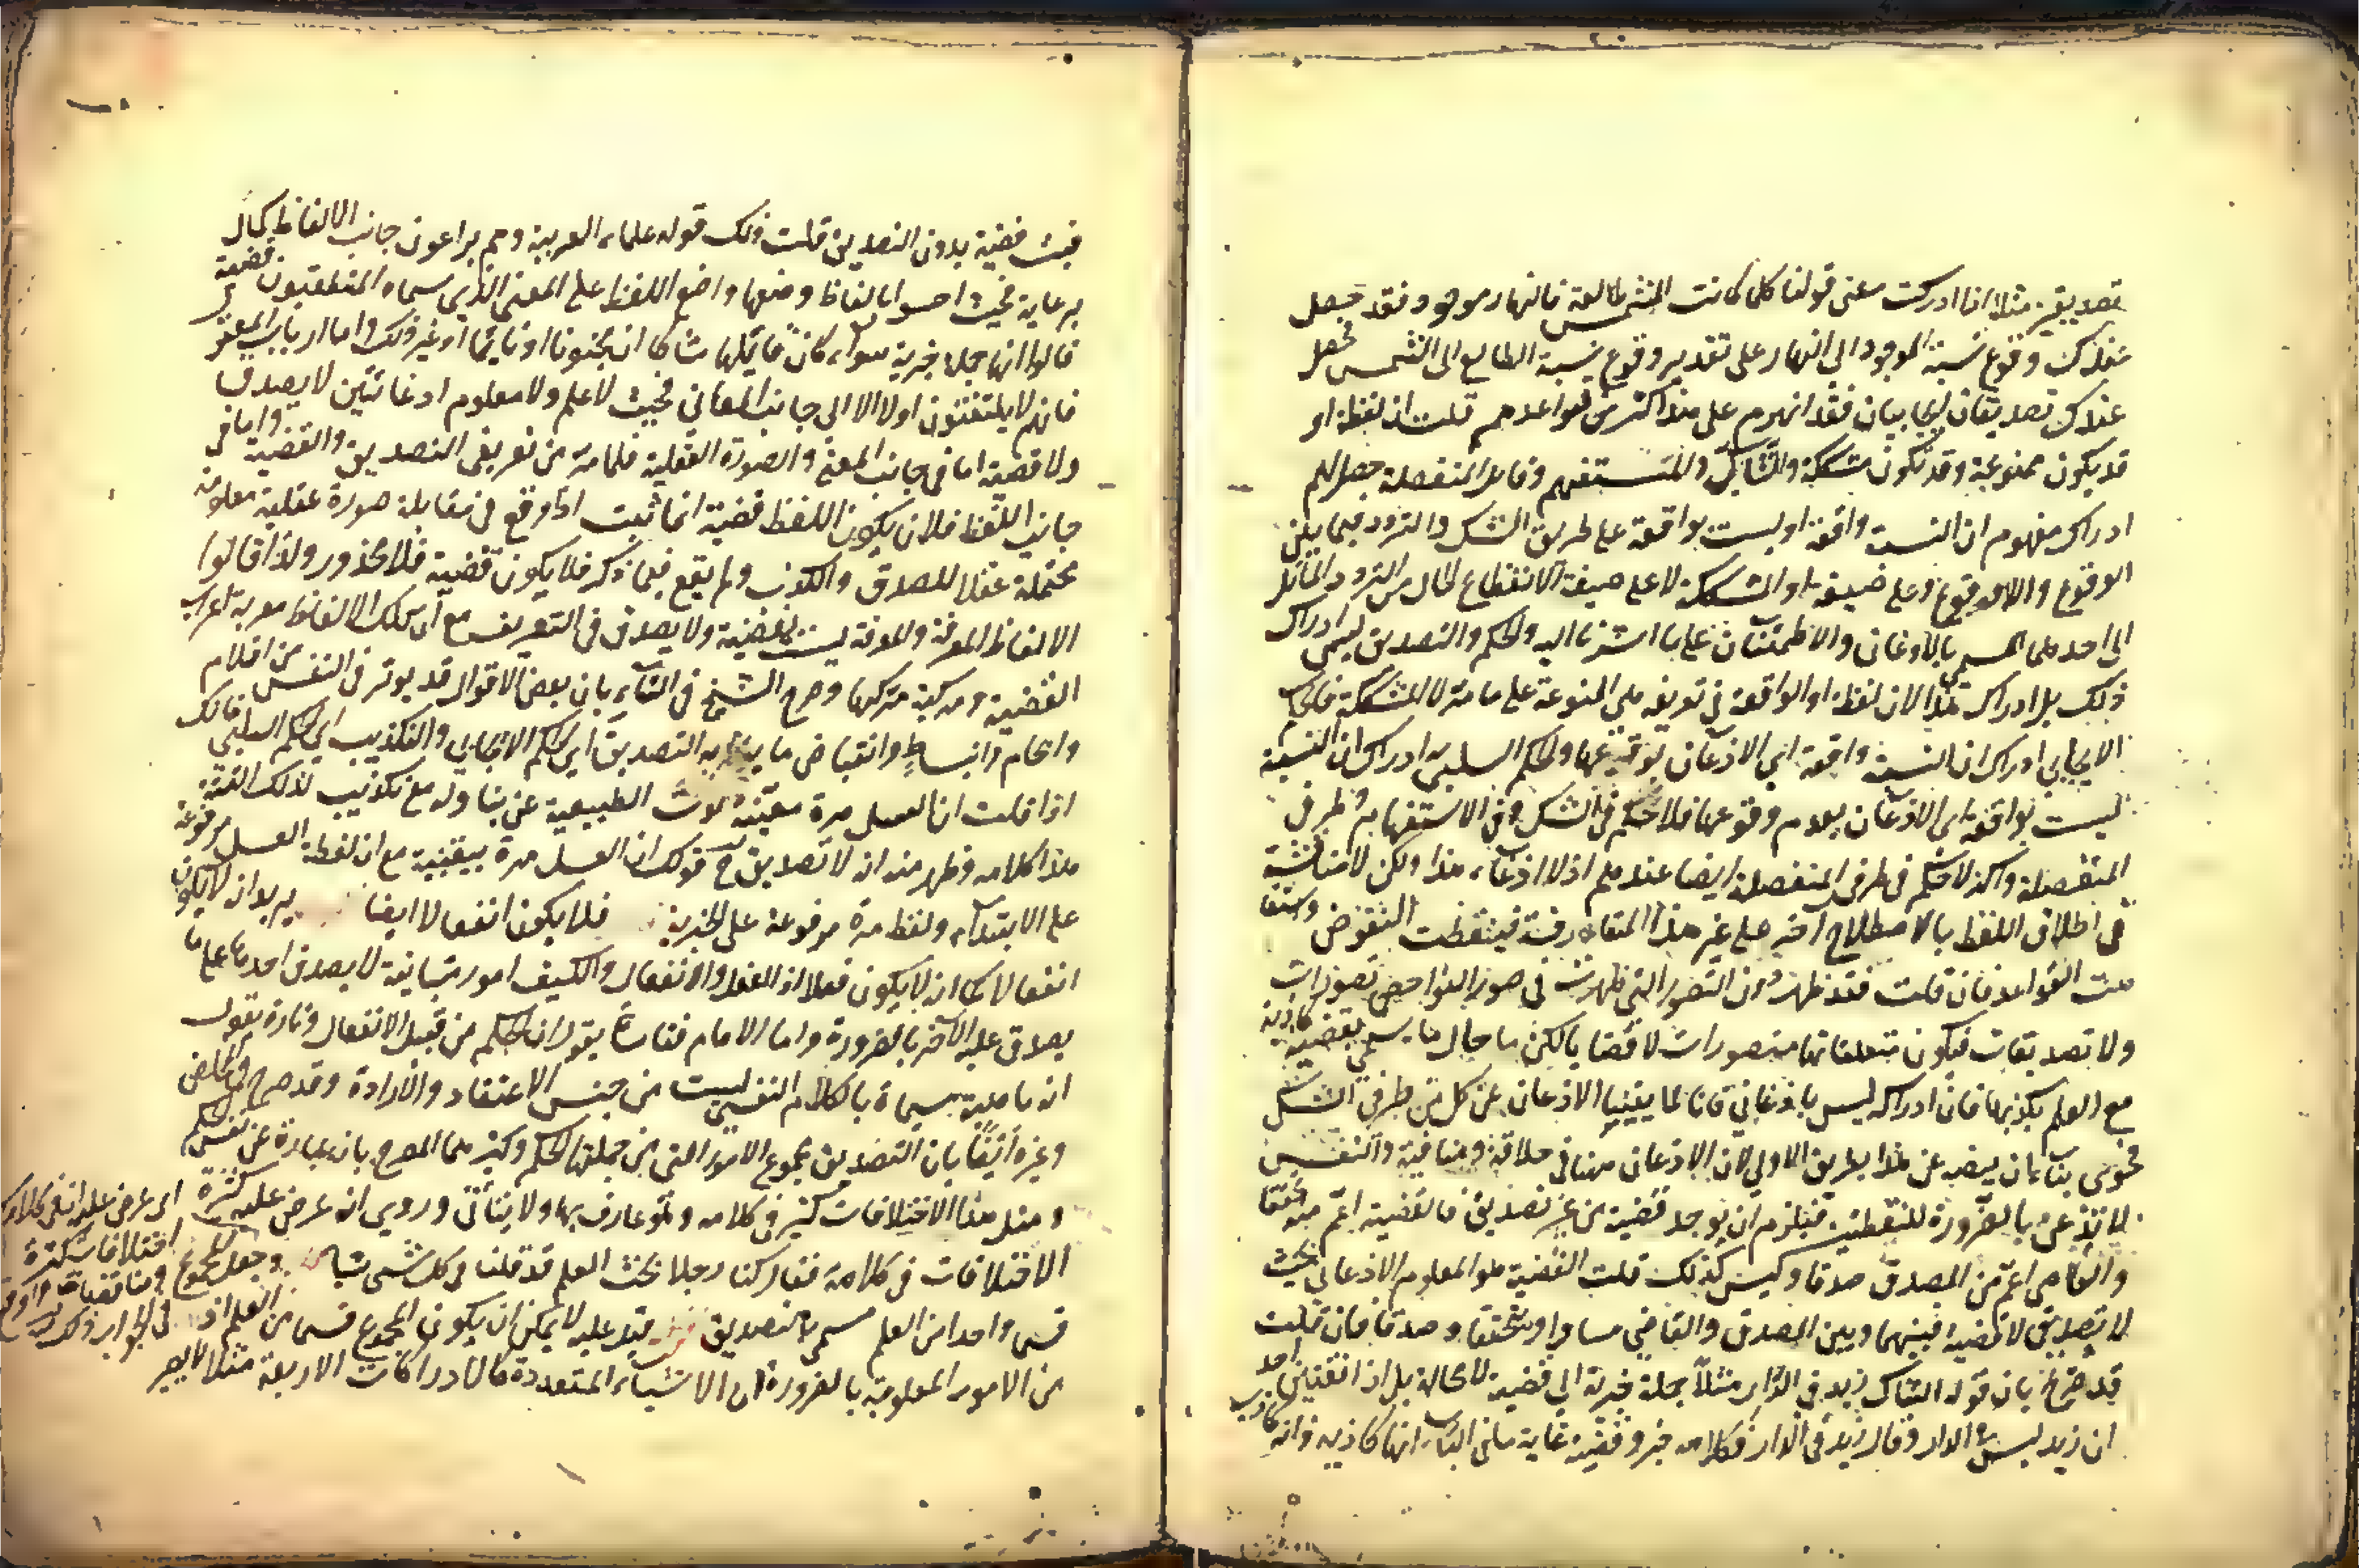 تصديقين مثلا اذا ادركت معنى قولنا كلما كانت الشمس طالعة فالنهار موجود فقد حصل
عندك وقوع نسبة الموجود الى النهار على تقدير وقوع نسبة الطالع الى الشمس فحصل
عندك تصديقان ايجابيان فقد انهدم على هذا كثير من قواعدهم قلت ان لفظة او
قد يكون ممنوعية وقد تكون مشككة والشاك والمستفهم وقايل المنفصلة حصل لهم
ادراك مفهوم ان النسبة واقعة او ليست بواقعة على طريق الشك والتردد فيما بين
الوقوع واللاوقوع وعلى صيغة او المشككة لا على صيغة الانقطاع الحال من التردد المائل
الى احدهما المسمى بالاذعان والاطمئنان على ما اشرنا اليه والحكم والتصديق ليسا ادراك
ذلك بل ادراك هذا لان لفظة او الواقعة في تعريفه هي المنوعة على ما مر لا المشككة فالحكم
الايجابي ادراك ان النسبة واقعة اي الاذعان بوقوعها والحكم السلبي ادراك ان النسبة
ليست بواقعة اي الاذعان بعدم وقوعها فلا حكم في الشك وفي الاستفهام وطرفي
المنفصلة واكد لا حكم في طرفي المنفصلة ايضا عندهم اذ لا اذعان هذا ولكن لا مناقشة
في اطلاق اللفظ بالاصطلاح آخر على غير هذا المتعارف فسقطت النقوض واستقا
مت القواعد فان قلت فقد ظهر ان التصور التي ظهرت في صور النواحض تصورات
ولا تصديقات فيكون متعلقاتها متصورات لا قضايا لكن ما حال ما يسمى بقضية كاذبة
مع العلم بكذبها فان ادراكه ليس باذعاني فانا لما يقينا الاذعان عن كل من طرفي الشك
فحوى بنا بان ينصه عن هذا بطريق الاولى لان الاذعان منافي علاقة ومنافية والنفس
لا تذعن بالضرورة للنقيضين فيلزم ان يوجد قضية من غير تصديق فالقضية اعم منه تحققا
والقاضي اعم من المصدق صدقا وليس كذلك قلت القضية هو المعلوم الاذعاني بحيث
لا تصديق لا قضية فبينهما وبين المصدق والقاضي مساواة تحققا وصدقا فان قلت
قد صرح بان قول الشاك زيد في الدار مثلا جملة خبرية اي قضية لا محالة بل اذ اتفقين احد
ان زيد ليس في الدار وقال زيد في الدار فكلامه خبر وقضية غاية ما في الباب انها كاذبة وانه كاذب
فيثبت قضية بدون التصديق قلت ذلك قول علماء العربية وهم يراعون جانب الالفاظ كمال
رعاية فحيث احسوا بالفاظ وضعها واضع اللفظ على المعنى الذي سماه المنطقيون قضية
قالوا انها جملة خبرية سواء كان قايلها شاكا او مجنونا او نايما او غير ذلك واما ارباب المعقول
فانهم لا يلتفتون اولا الا الى جانب المعاني فحيث لا علم ولا معلوم اذعانيين لا يصدق
ولا قضية اما في جانب المعنى والصورة العقلية فلما مر من تعريفي التصديق والقضية واما في
جانب اللفظ فلان يكون اللفظ قضية انما ثبت اذا وقع في مقابلة صورة عقلية معلومة
محتملة عقلا للصدق والكذب ولم يقع فيما ذكر فلا يكون قضية فلا محذور ولذا قالوا
الالفاظ المعرفة والمعرفة ليست بقضية ولا يصدق في التعريف مع ان تلك الالفاظ معربة اعراب
القضية ومركبة تركيبها وصرح الشيخ في الشفاء بان بعض الاقوال قد يوثر في النفس من اقدام
واحجام وانبساط وانقباض ما يوثر به التصديق اي الحكم الايجابي والتكذيب اي الحكم السلبي فانك
اذا قلت ان العسل مرة مقيئة تلوث الطبيعية عن تناوله مع تكذيب لذلك البتة
هذا كلامه وظهر منه ان لا تصديق في قولك ان العسل مرة مقيئة مع ان لفظة العسل مرفوعة
على الابتداء ولفظ مرة مرفوعة على الخبرية فلا يكون انفعالا ايضا يريد ان لا يكون
انفعالا كما انه لا يكون فعلا اذ الفعل والانفعال والكيف امور متباينة لا يصدق احدها على ما
يصدق عليه الآخر بالضرورة واما الامام فتارة يقول ان الحكم من قبيل الانفعال وتارة يقول
انه ماهية مسماة بالكلام النفسي ليست من جنس الاعتقاد والارادة وقد صرح في الملخص
وغيره ايضا بان التصديق مجموع الامور التي من جملتها الحكم وكثيرا ما صرح بانه عبارة عن نفس الحكم
ومثل هذا الاختلافات كثير في كلامه وهو عارف بها ولا يتأتى وروي انه عرض عليه كثرة
الاختلافات في كلامه فقال كنا رجلا بحث العلم قد قلنا في كل شيء شيا وجعل المجموع
قسما واحدا من العلم مسمى بالتصديق فقد قيل عليه لا يمكن ان يكون المجموع قسما من العلم اذ
من الامور المعلومة بالضرورة ان الاشياء المتعددة كالادراكات الاربعة مثلا لا يصير
اي عرض عليه ان في كلامك
اختلافات كثيرة
ومناقضات
في الجواب ذلك